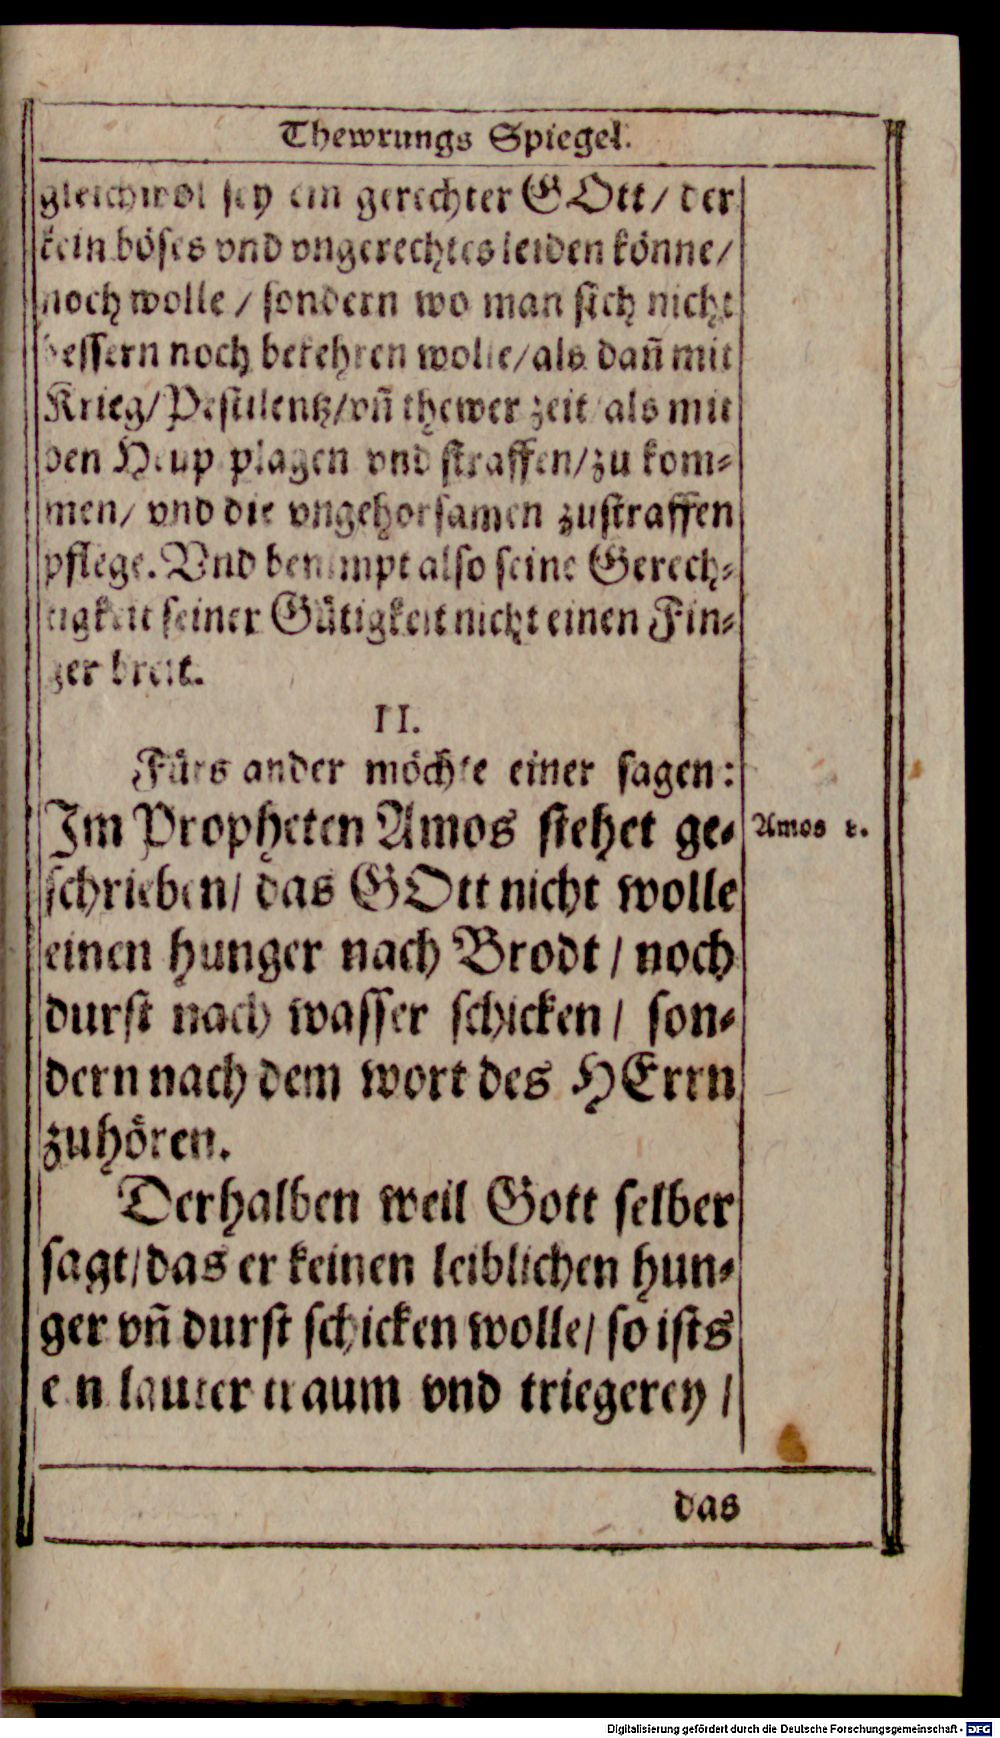 Thewrungs Spiegel.
gleichwol sey ein gerechter GOtt/ der
kein böses vnd vngerechtes leiden könne/
noch wolle / sondern wo man sich nicht
bessern noch bekehren wolle/als dañ mit
Krieg/Pestilentz/vñ thewer zeit als mit
den Heup plagen vnd straffen/zu kom⸗
men/ vnd die vngehorsamen zustraffen
pflege. Vnd benimpt also seine Gerech⸗
tigkeit seiner Gütigkeit nicht einen Fin⸗
ger breit.
II.
Fürs ander möchte einer sagen:
Im Propheten Amos stehet ge⸗
Amos 8.
schrieben/ das GOtt nicht wolle
einen hunger nach Brodt / noch
durst nach wasser schicken / son⸗
dern nach dem wort des HErrn
zuhören.
Derhalben weil Gott selber
sagt/das er keinen leiblichen hun⸗
ger vñ durst schicken wolle/ so ists
ein lauter traum vnd triegerey /
das
Digitalisierung gefördert durch die Deutsche Forschungsgemeinschaft - DFG